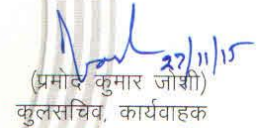 27/11/15
(प्रमोद कुमार जोशी)
कुलसचिव, कार्यवाहक